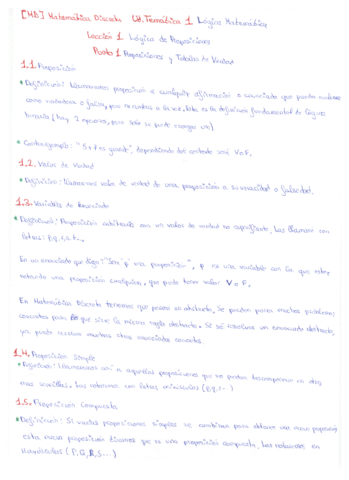 [MD] Matemática Discreta Ud. Temática 1 Lógica Matemática
Lección 1 Lógica de Proposiciones
Punto 1 Proposiciones y Tablas de Verdad
1.1. Proposición
* Definición: Llamaremos proposición a cualquier afirmación o enunciado que pueda
como verdadera o falsa, pero no ambas a la vez. Esta es la definición fundamental de lógica
binaria (hay 2 opciones, pero solo se puede escoger una)
* Contraejemplo: "5 € es grande", dependiendo del contexto será V o F.
1.2. Valor de Verdad
* Definición: Llamaremos valor de verdad de una proposición a su veracidad o falsedad.
1.3. Variable de Enunciado
* Definición: Proposición arbitraria con un valor de verdad no especificado. Las llamamos con
letras: p, q, r, s, t...
En un enunciado que diga: "Sea 'p' una proposición", p es una variable con la que
una proposición cualquiera, que puede tener valor V o F.
En Matemática Discreta tenemos que pensar en abstracto. Se pueden poner muchos problemas
concretos para que siga la misma regla abstracta. Si se resuelve un enunciado abstracto,
ya puedo resolver muchos otros enunciados concretos.
1.4. Proposición Simple
* Definición: Llamaremos así a aquellas proposiciones que no puedan descomponerse en otras
más sencillas. Las notaremos con letras minúsculas (p, q, r...)
1.5. Proposición Compuesta
* Definición: Si varias proposiciones simples se combinan para obtener una nueva proposición
esta nueva proposición diremos que es una proposición compuesta. Las notaremos en
mayúsculas (P, Q, R, S...)